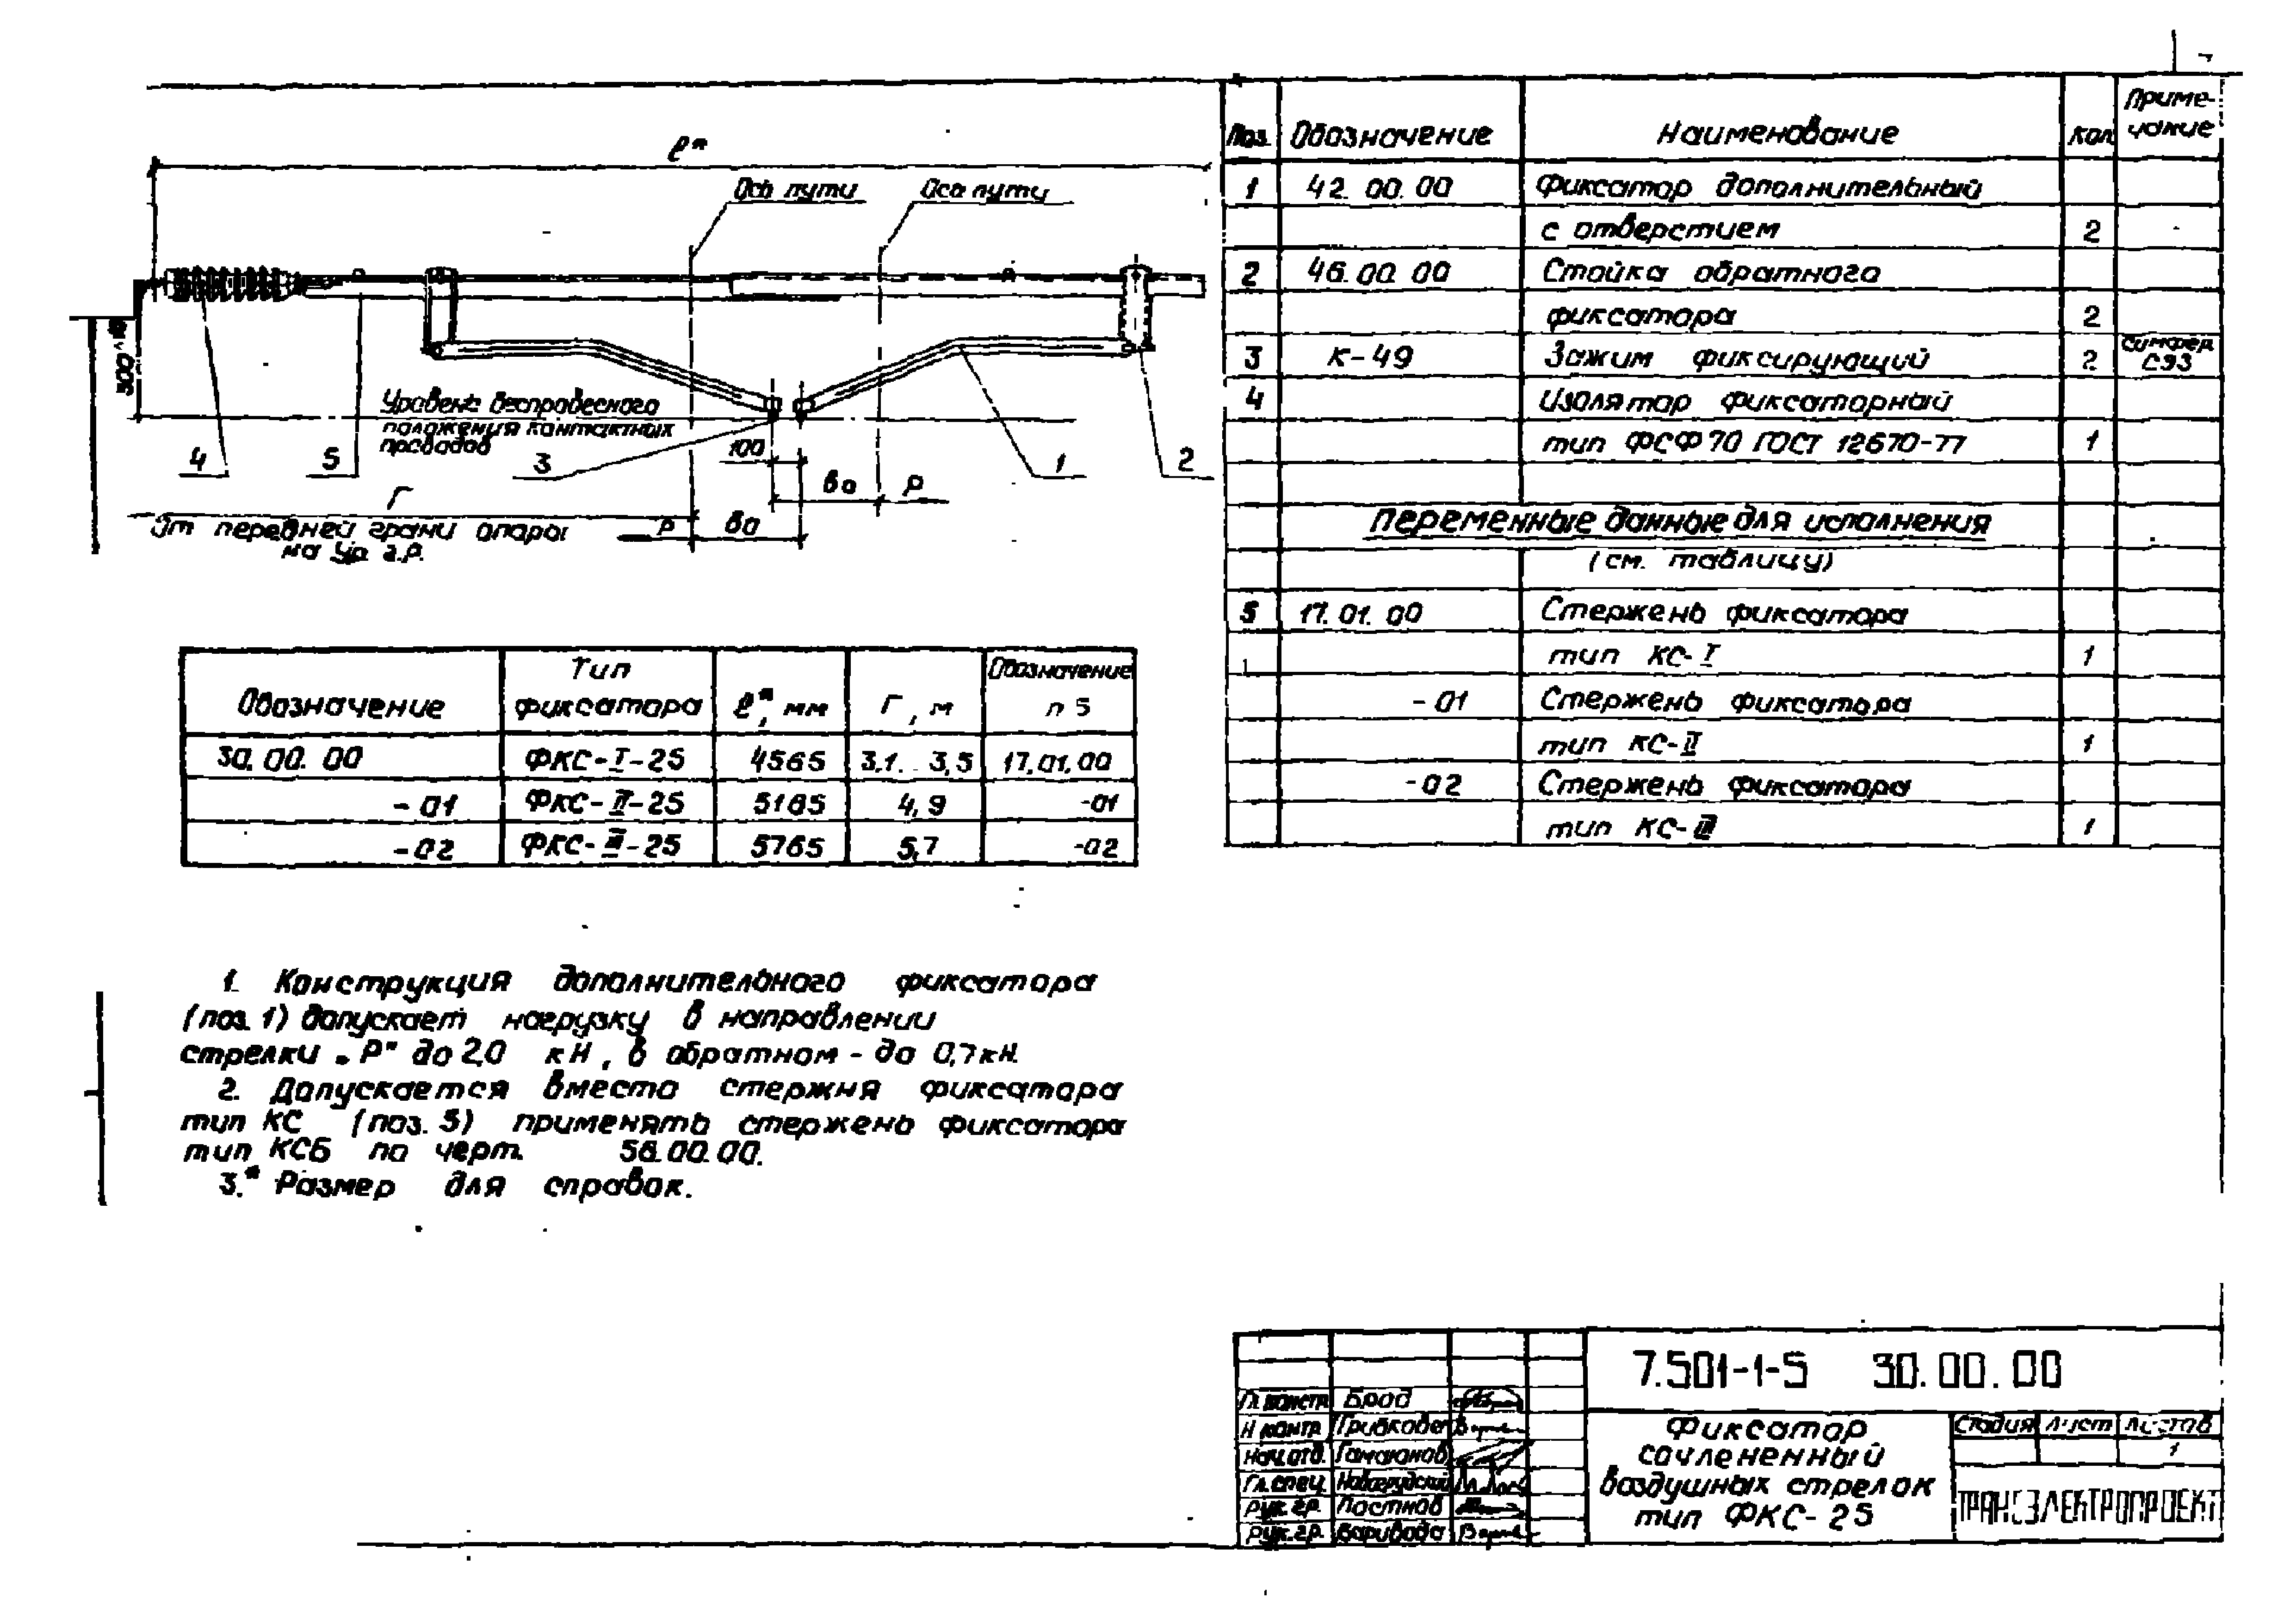 ℓ*
Ось пути
Ось пути
Уровень беспровесного
положения контактных
проводов
4
5
3
100
1
2
во
Р
Г
От передней грани опоры
на ур. г.р.
Р
во
Обозначение | Тип фиксатора | ℓ*, мм | Г, м | Обозначение п 5
30.00.00 | ФКС-I-25 | 4565 | 3,1...3,5 | 17.01.00
-01 | ФКС-II-25 | 5165 | 4,9 | -01
-02 | ФКС-III-25 | 5765 | 5,7 | -02
1. Конструкция дополнительного фиксатора
(поз. 1) допускает нагрузку в направлении
стрелки „Р" до 2,0 кН, в обратном - до 0,7 кН.
2. Допускается вместо стержня фиксатора
тип КС (поз. 5) применять стержень фиксатора
тип КСБ по черт. 56.00.00.
3.* Размер для справок.
Поз. | Обозначение | Наименование | Кол | Приме-чание
1 | 42.00.00 | Фиксатор дополнительный
с отверстием | 2
2 | 46.00.00 | Стойка обратного
фиксатора | 2
3 | К-49 | Зажим фиксирующий | 2 | СЭЗ
4 | Изолятор фиксаторный
тип ФСФ70 ГОСТ 12670-77 | 1
Переменные данные для исполнения
(см. таблицу)
5 | 17.01.00 | Стержень фиксатора
тип КС-I | 1
-01 | Стержень фиксатора
тип КС-II | 1
-02 | Стержень фиксатора
тип КС-III | 1
7.501-1-5 30.00.00
Гл. констр. Брод
Н. контр. Грибкова
Нач. отд. Гамаюнов
Гл. спец. Новогрудский
Рук. гр. Постнов
Рук. гр. Варивода
Фиксатор
сочлененный
воздушных стрелок
тип ФКС-25
Стадия | Лист | Листов
1
ТРАНСЭЛЕКТРОПРОЕКТ